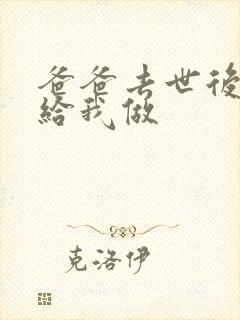 爸爸去世後
給我做
克洛伊